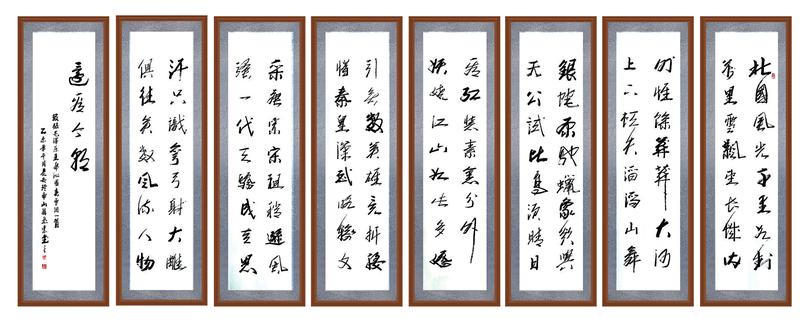 北國風光千里冰封
万里雪飄望长城内
外惟餘莽莽大河
上下頓失滔滔山舞
銀蛇原馳蠟象欲與
天公試比高須晴日
看红装素裹分外
妖娆江山如此多娇
引無數英雄竞折腰
惜秦皇漢武略输文
采唐宗宋祖稍遜風
骚一代天骄成吉思
汗只識弯弓射大雕
俱往矣数風流人物
還看今朝
敬録毛泽东主席沁园春雪词一首